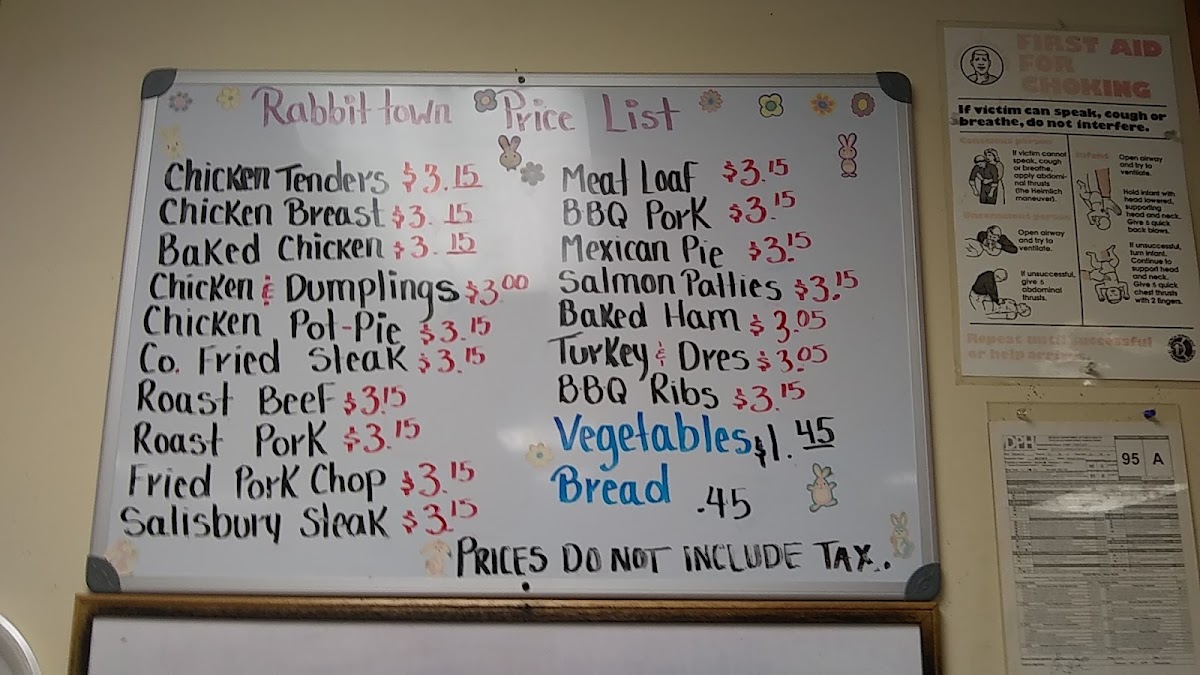 Rabbittown Price List
Chicken Tenders $3.15
Chicken Breast $3.15
Baked Chicken $3.15
Chicken & Dumplings $3.00
Chicken Pot-Pie $3.15
Co. Fried Steak $3.15
Roast Beef $3.15
Roast Pork $3.15
Fried Pork Chop $3.15
Salisbury Steak $3.15
Meat Loaf $3.15
BBQ Pork $3.15
Mexican Pie $3.15
Salmon Patties $3.15
Baked Ham $3.05
Turkey & Dres $3.05
BBQ Ribs $3.15
Vegetables $1.45
Bread .45
PRICES DO NOT INCLUDE TAX.
FIRST AID
FOR
CHOKING
If victim can speak, cough or
breathe, do not interfere.
Conscious person
If victim cannot
speak, cough
or breathe,
apply abdomi-
nal thrusts
(the Heimlich
maneuver).
Unconscious person
Open airway
and try to
ventilate.
If unsuccessful,
give 5
abdominal
thrusts.
Infant
Open airway
and try to
ventilate.
Hold infant with
head lowered,
supporting
head and neck.
Give 5 quick
back blows.
If unsuccessful,
turn infant.
Continue to
support head
and neck.
Give 5 quick
chest thrusts
with 2 fingers.
Repeat until successful
or help arrives.
DPH
95 A